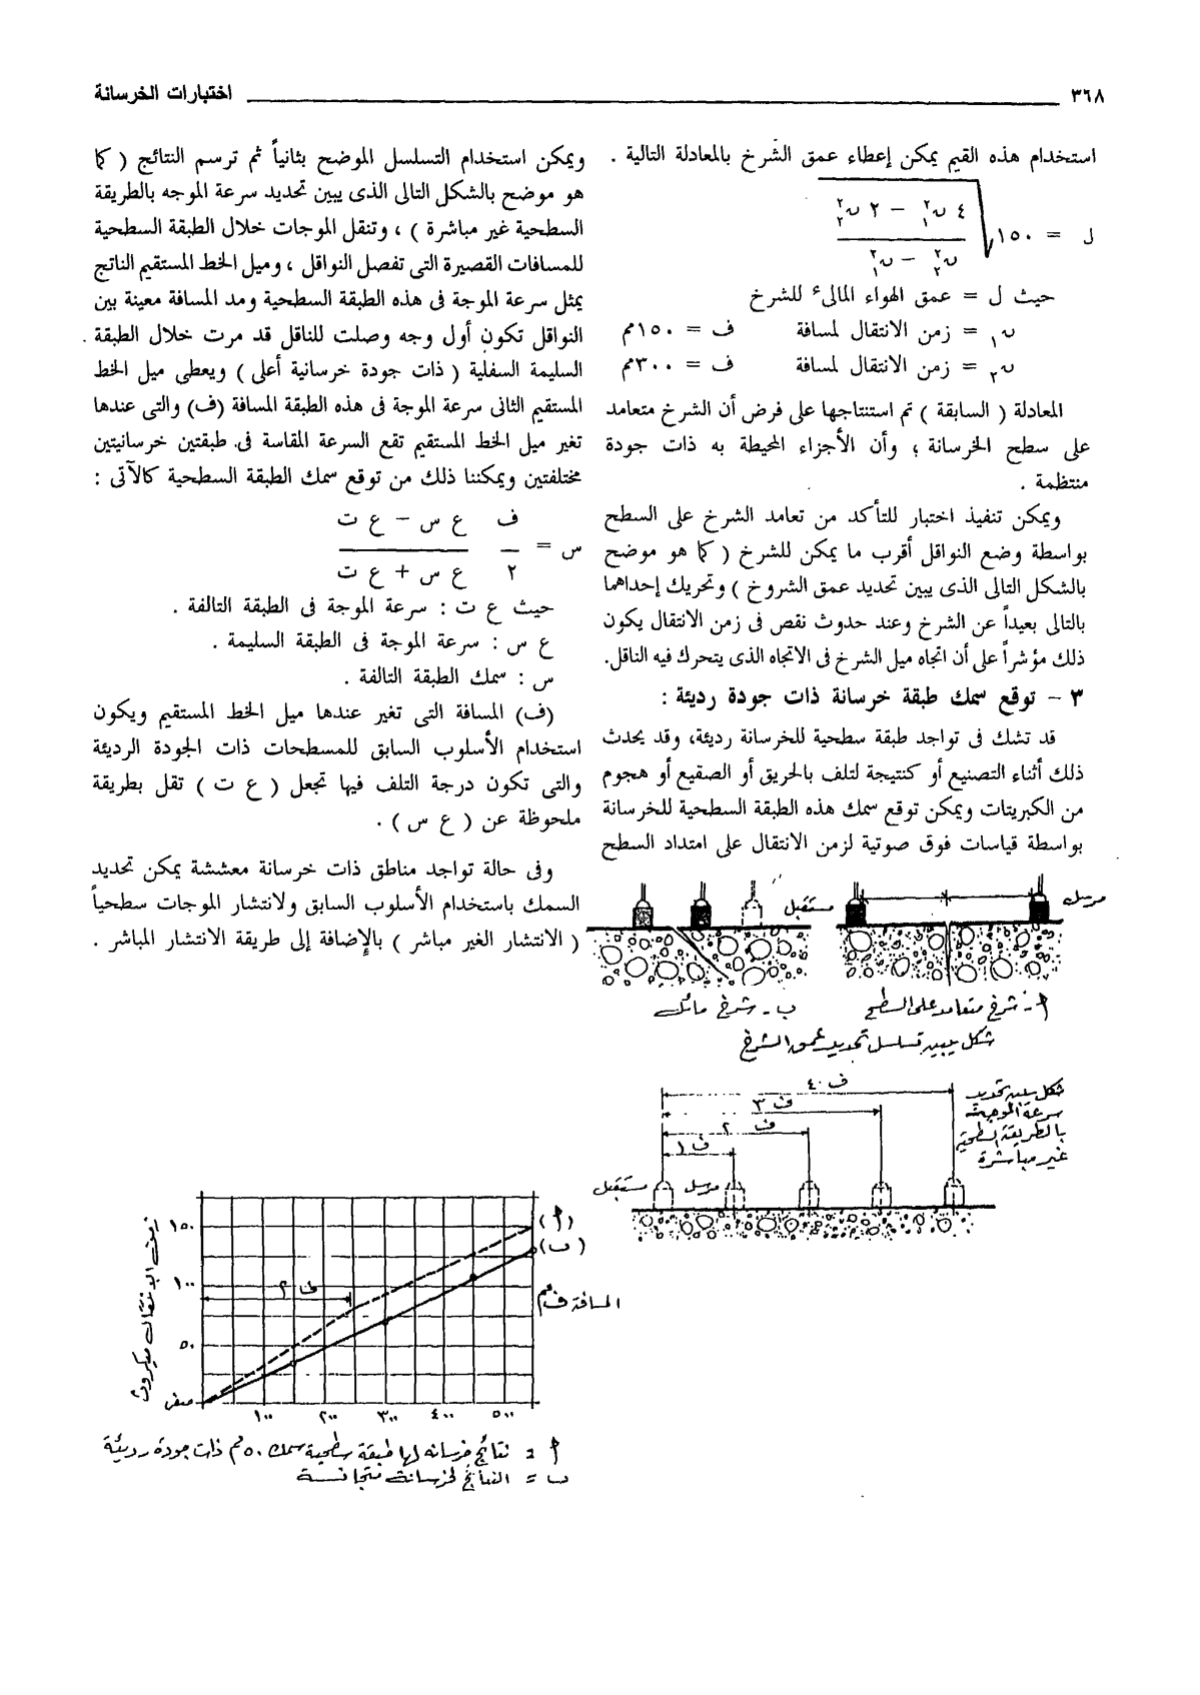 ٣٦٨
اختبارات الخرسانة
استخدام هذه القيم يمكن إعطاء عمق الشرخ بالمعادلة التالية .
ل = ١٥٠ √ ((٤ ن١² − ٢ ن٢²) / (ن٢² − ن١²))
حيث ل = عمق الهواء المالىء للشرخ
ن١ = زمن الانتقال لمسافة ف = ١٥٠مم
ن٢ = زمن الانتقال لمسافة ف = ٣٠٠مم
المعادلة ( السابقة ) تم استنتاجها على فرض أن الشرخ متعامد
على سطح الخرسانة ؛ وأن الأجزاء المحيطة به ذات جودة
منتظمة .
ويمكن تنفيذ اختبار للتأكد من تعامد الشرخ على السطح
بواسطة وضع النواقل أقرب ما يمكن للشرخ ( كما هو موضح
بالشكل التالى الذى يبين تحديد عمق الشروخ ) وتحريك إحداهما
بالتالى بعيداً عن الشرخ وعند حدوث نقص فى زمن الانتقال يكون
ذلك مؤشراً على أن اتجاه ميل الشرخ فى الاتجاه الذى يتحرك فيه الناقل.
٣ − توقع سمك طبقة خرسانة ذات جودة رديئة :
قد تشك فى تواجد طبقة سطحية للخرسانة رديئة، وقد يحدث
ذلك أثناء التصنيع أو كنتيجة لتلف بالحريق أو الصقيع أو هجوم
من الكبريتات ويمكن توقع سمك هذه الطبقة السطحية للخرسانة
بواسطة قياسات فوق صوتية لزمن الانتقال على امتداد السطح
مرسل
مستقبل
أ - شرخ متعامد على السطح
ب - شرخ مائل
شكل يبين تسلسل تحديد عمق الشرخ
شكل يبين تحديد
سرعة الموجة
بالطريقة السطحية
غير مباشرة
ف ٤
ف ٣
ف ٢
ف ١
مستقبل
مرسل
ويمكن استخدام التسلسل الموضح بثانياً ثم ترسم النتائج ( كما
هو موضح بالشكل التالى الذى يبين تحديد سرعة الموجه بالطريقة
السطحية غير مباشرة ) ، وتنقل الموجات خلال الطبقة السطحية
للمسافات القصيرة التى تفصل النواقل ، وميل الخط المستقيم الناتج
يمثل سرعة الموجة فى هذه الطبقة السطحية ومد المسافة معينة بين
النواقل تكون أول وجه وصلت للناقل قد مرت خلال الطبقة
السليمة السفلية ( ذات جودة خرسانية أعلى ) ويعطى ميل الخط
المستقيم الثانى سرعة الموجة فى هذه الطبقة المسافة (ف) والتى عندها
تغير ميل الخط المستقيم تقع السرعة المقاسة فى طبقتين خرسانيتين
مختلفتين ويمكننا ذلك من توقع سمك الطبقة السطحية كالآتى :
س = ف / ٢ (ع س − ع ت) / (ع س + ع ت)
حيث ع ت : سرعة الموجة فى الطبقة التالفة .
ع س : سرعة الموجة فى الطبقة السليمة .
س : سمك الطبقة التالفة .
(ف) المسافة التى تغير عندها ميل الخط المستقيم ويكون
استخدام الأسلوب السابق للمسطحات ذات الجودة الرديئة
والتى تكون درجة التلف فيها تجعل ( ع ت ) تقل بطريقة
ملحوظة عن ( ع س ) .
وفى حالة تواجد مناطق ذات خرسانة معششة يمكن تحديد
السمك باستخدام الأسلوب السابق ولانتشار الموجات سطحياً
( الانتشار الغير مباشر ) بالإضافة إلى طريقة الانتشار المباشر .
زمن الانتقال ميكروث
١٥٠
١٠٠
٥٠
صفر
١٠٠
٢٠٠
٣٠٠
٤٠٠
٥٠٠
(أ)
(ب)
المسافة ف مم
أ = نتائج خرسانه لها طبقة سطحية سمك ٥٠ مم ذات جودة رديئة
ب = النتائج لخرسانة متجانسة